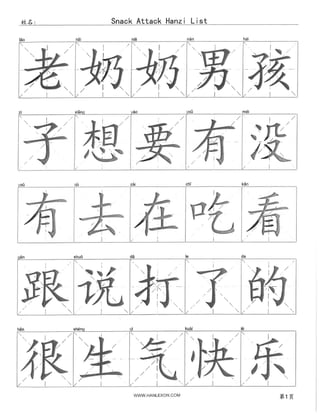 姓名: Snack Attack Hanzi List
lǎo nǎi nǎi nán hái
老奶奶男孩
zǐ xiǎng yào yǒu méi
子想要有没
yǒu qù zài chī kàn
有去在吃看
gēn shuō dǎ le de
跟说打了的
hěn shēng qì kuài lè
很生气快乐
WWW.HANLEXON.COM 第1页